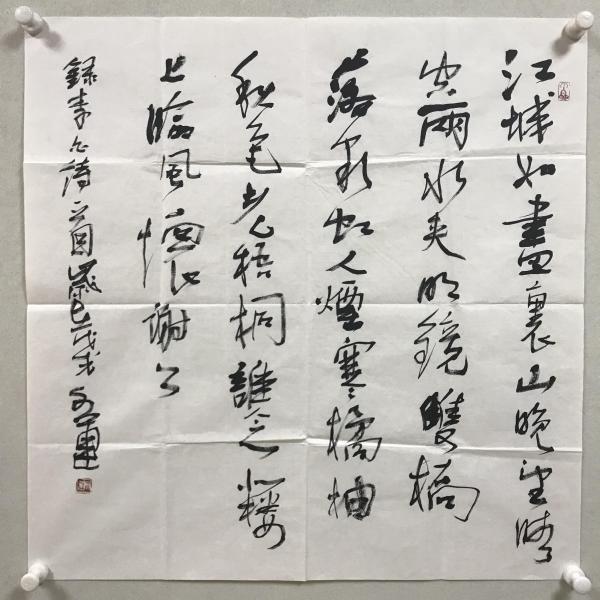 江城如畫裏山晚望晴
空兩水夾明鏡雙橋
落彩虹人煙寒橘柚
秋色老梧桐誰念北樓
上臨風懷謝公
錄李白詩歲戊戌